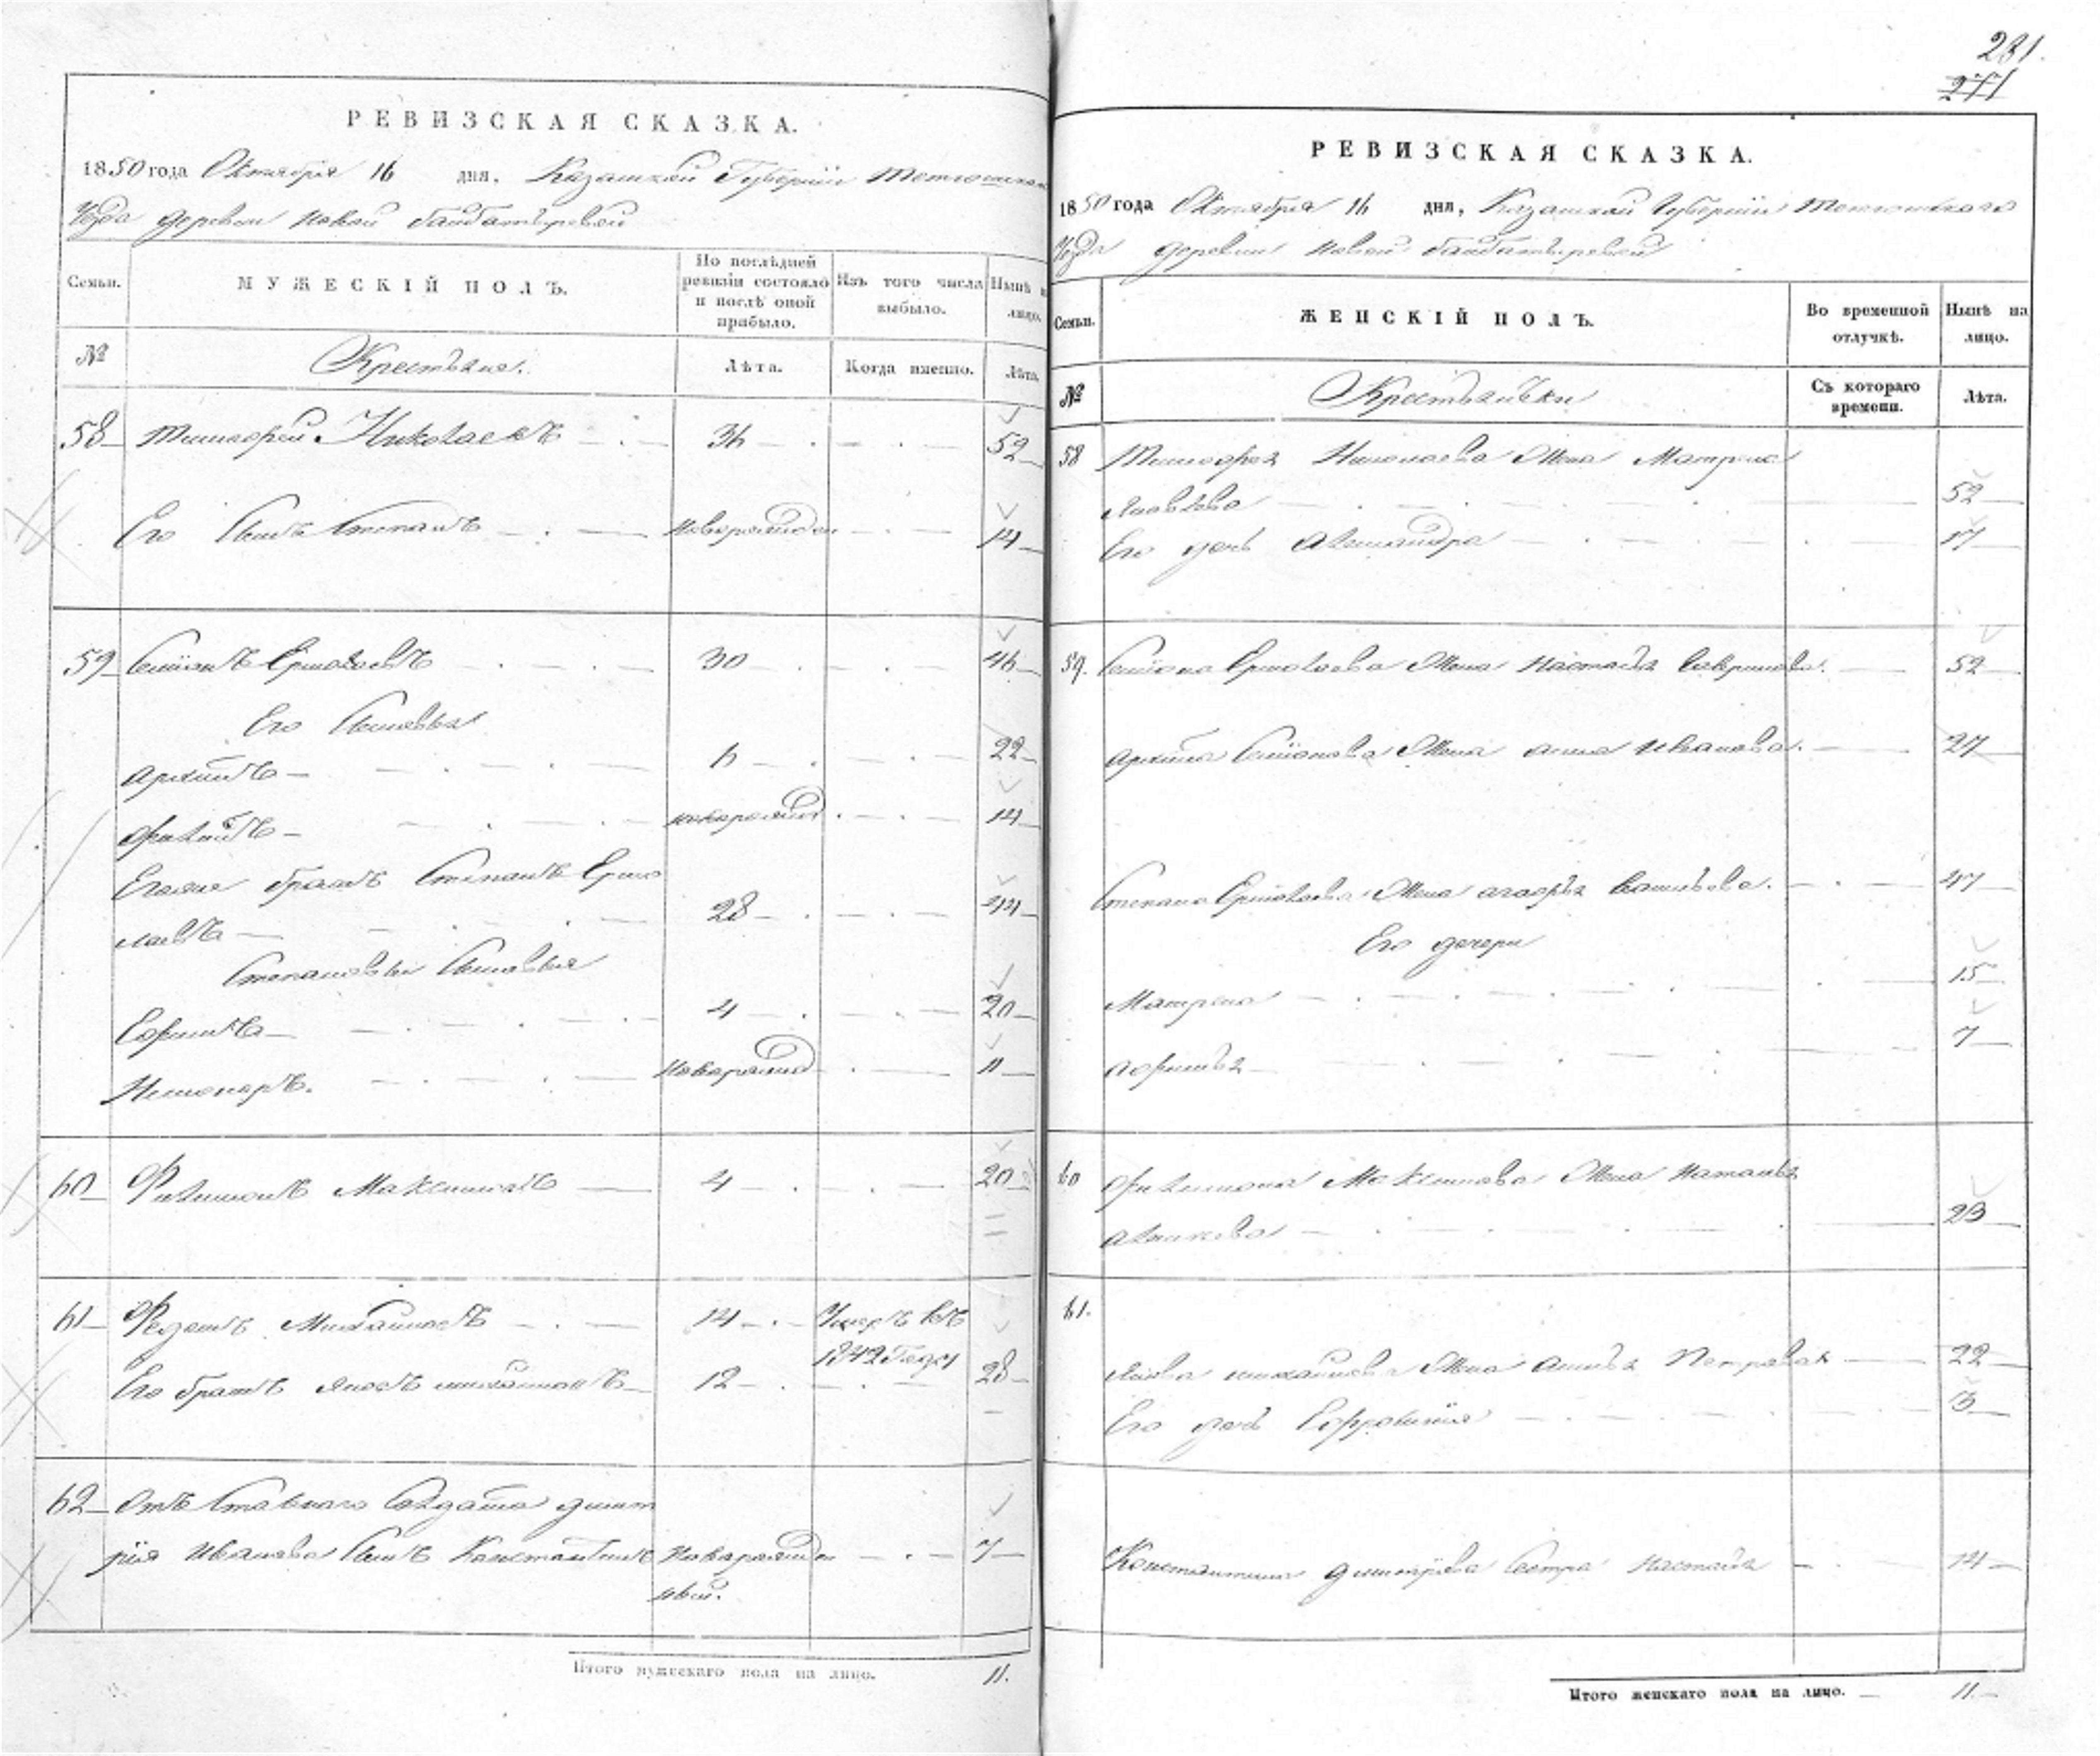 231.
271
РЕВИЗСКАЯ СКАЗКА.
1850 года Октября 16 дня, Казанской Губернiи Тетюшскаго
Уѣзда деревни Новой Байбатыревой
Семьи. МУЖЕСКІЙ ПОЛЪ. По послѣдней ревизіи состояло и послѣ оной прибыло. Изъ того числа выбыло. Нынѣ на лицо.
№ Крестьяне. Лѣта. Когда именно. Лѣта.
58 Тимофей Николаевъ 36 52
Его Сынъ Степанъ новорожден 14
59 Семiонъ Ермолаевъ 30 46
Его Сыновья
Архипъ 6 22
Филипъ новорожд 14
Егоже братъ Степанъ Ермо
лаевъ 28 44
Степановы Сыновья
Ефимъ 4 20
Никоноръ. Новорожд 11
60 Филимонъ Максимовъ 4 20
61 Федотъ Михайловъ 14 Умеръ въ
1842 Году
Его братъ Яковъ михайловъ 12 28
62 Отъ Ставнаго Солдата дмит
рiя Иванова Сынъ Константинъ Новорожден 7
ный.
Итого мужескаго пола на лицо. 11.
РЕВИЗСКАЯ СКАЗКА.
1850 года Октября 16 дня, Казанской Губернiи Тетюшскаго
Уѣзда деревни Новой Байбатыревой
Семьи. ЖЕНСКІЙ ПОЛЪ. Во временной отлучкѣ. Нынѣ на лицо.
№ Крестьянки Съ котораго времени. Лѣта.
58 Тимофея Николаева Жена Матрена
Яковлева 52
Его дочь Александра 17
59. Семiона Ермолаева Жена Настасья Гаврилова. 52
Архипа Семiонова Жена анна Иванова. 27
Степана Ермолаева Жена агафья Васильева. 47
Его дочери
Матрена 15
Афимья 7
60 Филимона Максимова Жена Наталья
23
61.
Якова михайлова Жена Петрова 22
Его дочь Ефросинiя 3
Константина дмитрiева Сестра Настасья 14
Итого женскаго пола на лицо. 11